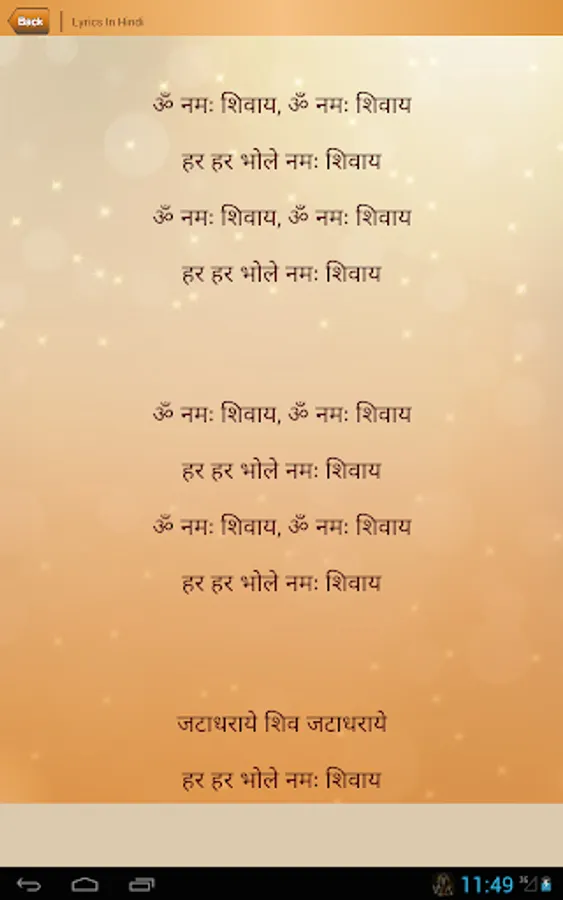 Back
Lyrics In Hindi
ॐ नमः शिवाय, ॐ नमः शिवाय
हर हर भोले नमः शिवाय
ॐ नमः शिवाय, ॐ नमः शिवाय
हर हर भोले नमः शिवाय
ॐ नमः शिवाय, ॐ नमः शिवाय
हर हर भोले नमः शिवाय
ॐ नमः शिवाय, ॐ नमः शिवाय
हर हर भोले नमः शिवाय
जटाधराये शिव जटाधराये
हर हर भोले नमः शिवाय
11:49